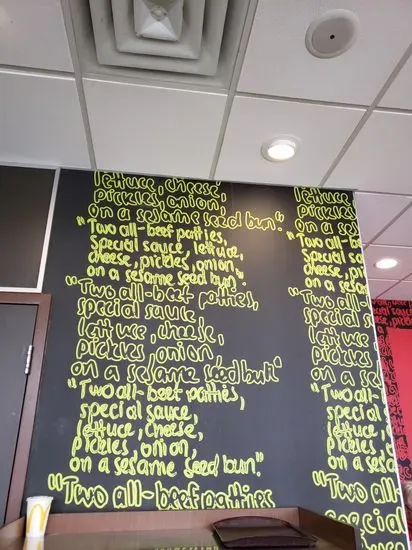 lettuce, cheese,
pickles, onion,
on a sesame seed bun."
"Two all-beef patties,
special sauce, lettuce,
cheese, pickles, onion,
on a sesame seed bun."
"Two all-beef patties,
special sauce,
lettuce, cheese,
pickles onion
on a sesame seed bun"
"Two all-beef patties,
special sauce,
lettuce, cheese,
pickles, onion,
on a sesame seed bun."
"Two all-beef patties
lettuce
pickles,
on a s
"Two all-b
special sa
cheese, pi
on a sesam
"Two all-
special
lettuce
pickles
on a se
"Two all-
special
lettuce,
pickles,
on a ses
"Two all-
special